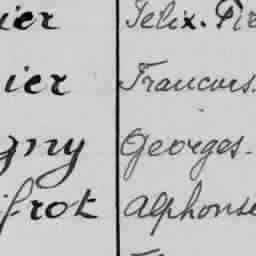 ier Felix. Pir
ier Francois.
gny Georges.
frot Alphonse